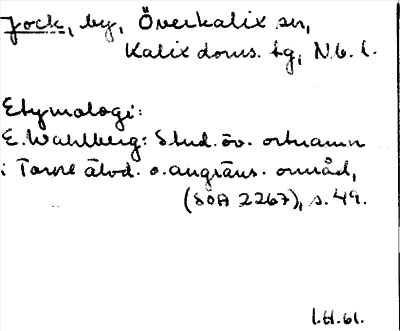 Jock, by, Överkalix sn,
Kalix doms. tg, N.b. l.
Etymologi:
E. Wahlberg: Stud. öv. ortnamn
i Torne älvd. o. angräns. områd,
(SOA 2267), s. 49.
I.H.61.